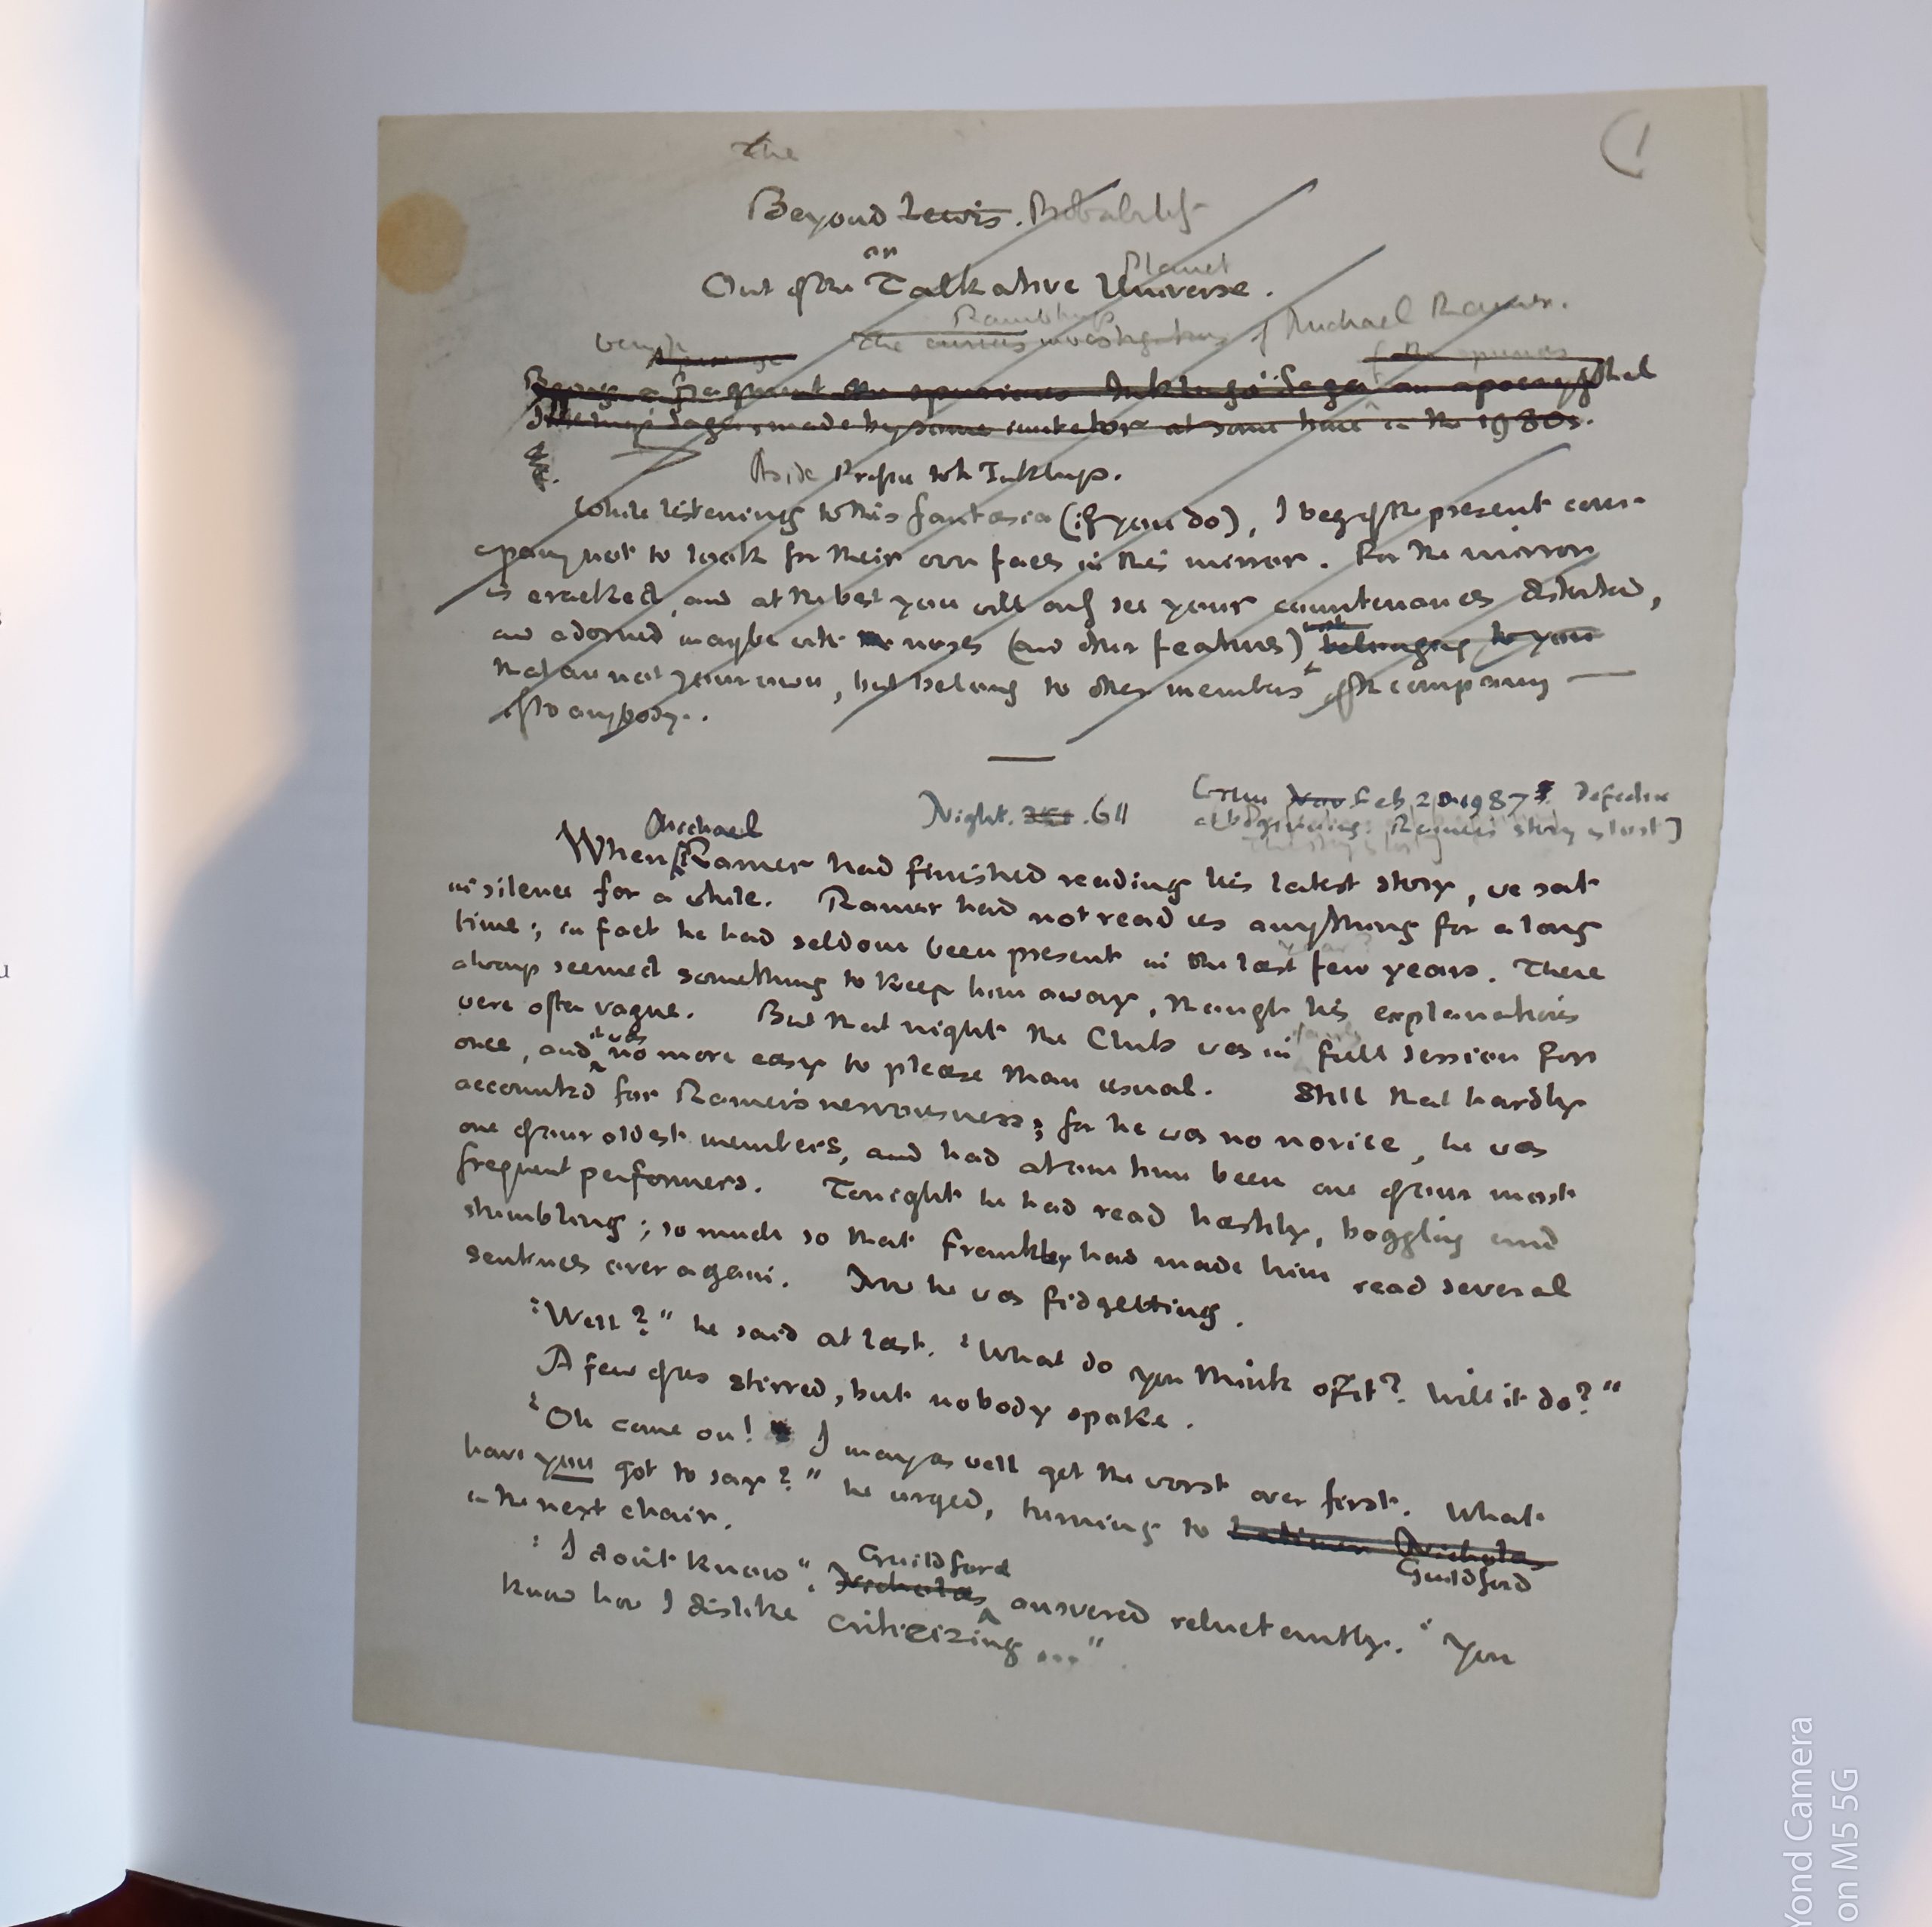 the
(1
Beyond Lewis. Probability
or
Planet
Out of the Talkative Universe.
Ramblings
The curious investigations of Michael Ramer.
being
of the spurious
Being a fragment of an apocryphal
Inklings' Saga, made by some imitator at some time in the 1980s.
Aside Preface to the Inklings.
While listening to this fantasia (if you do), I beg of the present com-
pany not to look for their own faces in this mirror. For the mirror
is cracked, and at the best you will only see your countenances distorted,
and adorned maybe with noses (and other features) belonging to you
that are not your own, but belong to other members of the company —
if to anybody.
Night. 251. 61
Nov Feb 20 1987 Defective
at beginning: Ramer's story is lost]
The story is lost]
Michael
When Ramer had finished reading his latest story, we sat
in silence for a while. Ramer had not read us anything for a long
time; in fact he had seldom been present in the last few years. There
year?
always seemed something to keep him away, though his explanations
were often vague. But that night the Club was in full session for
it was
once, and no more easy to please than usual. Still that hardly
accounted for Ramer's nervousness; for he was no novice, he was
one of our oldest members, and had at one time been one of our most
frequent performers. Tonight he had read hastily, boggling and
stumbling; so much so that Frankley had made him read several
sentences over again. Now he was fidgetting.
'Well?" he said at last. 'What do you think of it? Will it do?"
A few of us stirred, but nobody spoke.
'Oh come on! I may as well get the worst over first. What
have you got to say?" he urged, turning to Latimer Nicholas
Guildford
in the next chair.
Guildford
'I don't know". Nicholas answered reluctantly. 'You
know how I dislike criticizing ..."
Yond Camera
on M5 5G
u